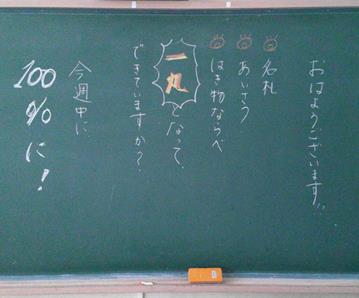 おはようございます!!
名札
あいさつ
はき物ならべ
一丸となって、
できていますか?
今週中に
100%に!